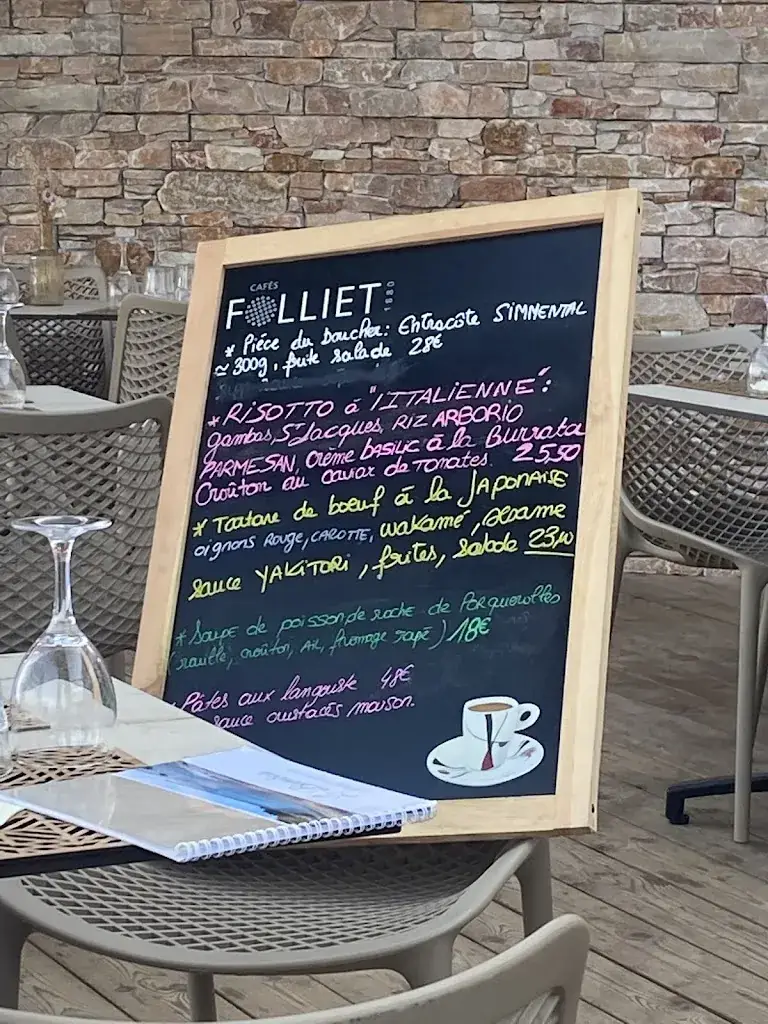 CAFÉS
FOLLIET 1880
* Pièce du boucher: Entrecôte SIMMENTAL
≃ 300g, frite salade 28€
* RISOTTO à "l'ITALIENNE":
gambas, St Jacques, RIZ ARBORIO
PARMESAN, Crème BASILIC à la Burrata
Croûton au caviar de Tomates. 25,50
* Tartare de boeuf à la JAPONAISE
oignons ROUGE, CAROTTE, wakamé, sesame
sauce YAKITORI, frites, salade
* Soupe de poisson de roche de Porquerolles
(rouille, croûton, AIL, fromage rapé) 18€
Pâtes aux langouste 48€
sauce crustacés maison.